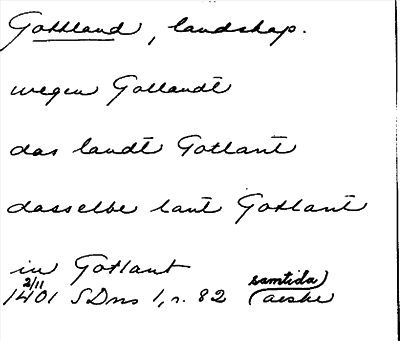 Gottland, landskap.
wegen Gollandt
das landt Gotlant
dasselbe lant Gotlant
in Gotlant
2/11 samtida)
1401 SDns 1, n. 82 (avskr